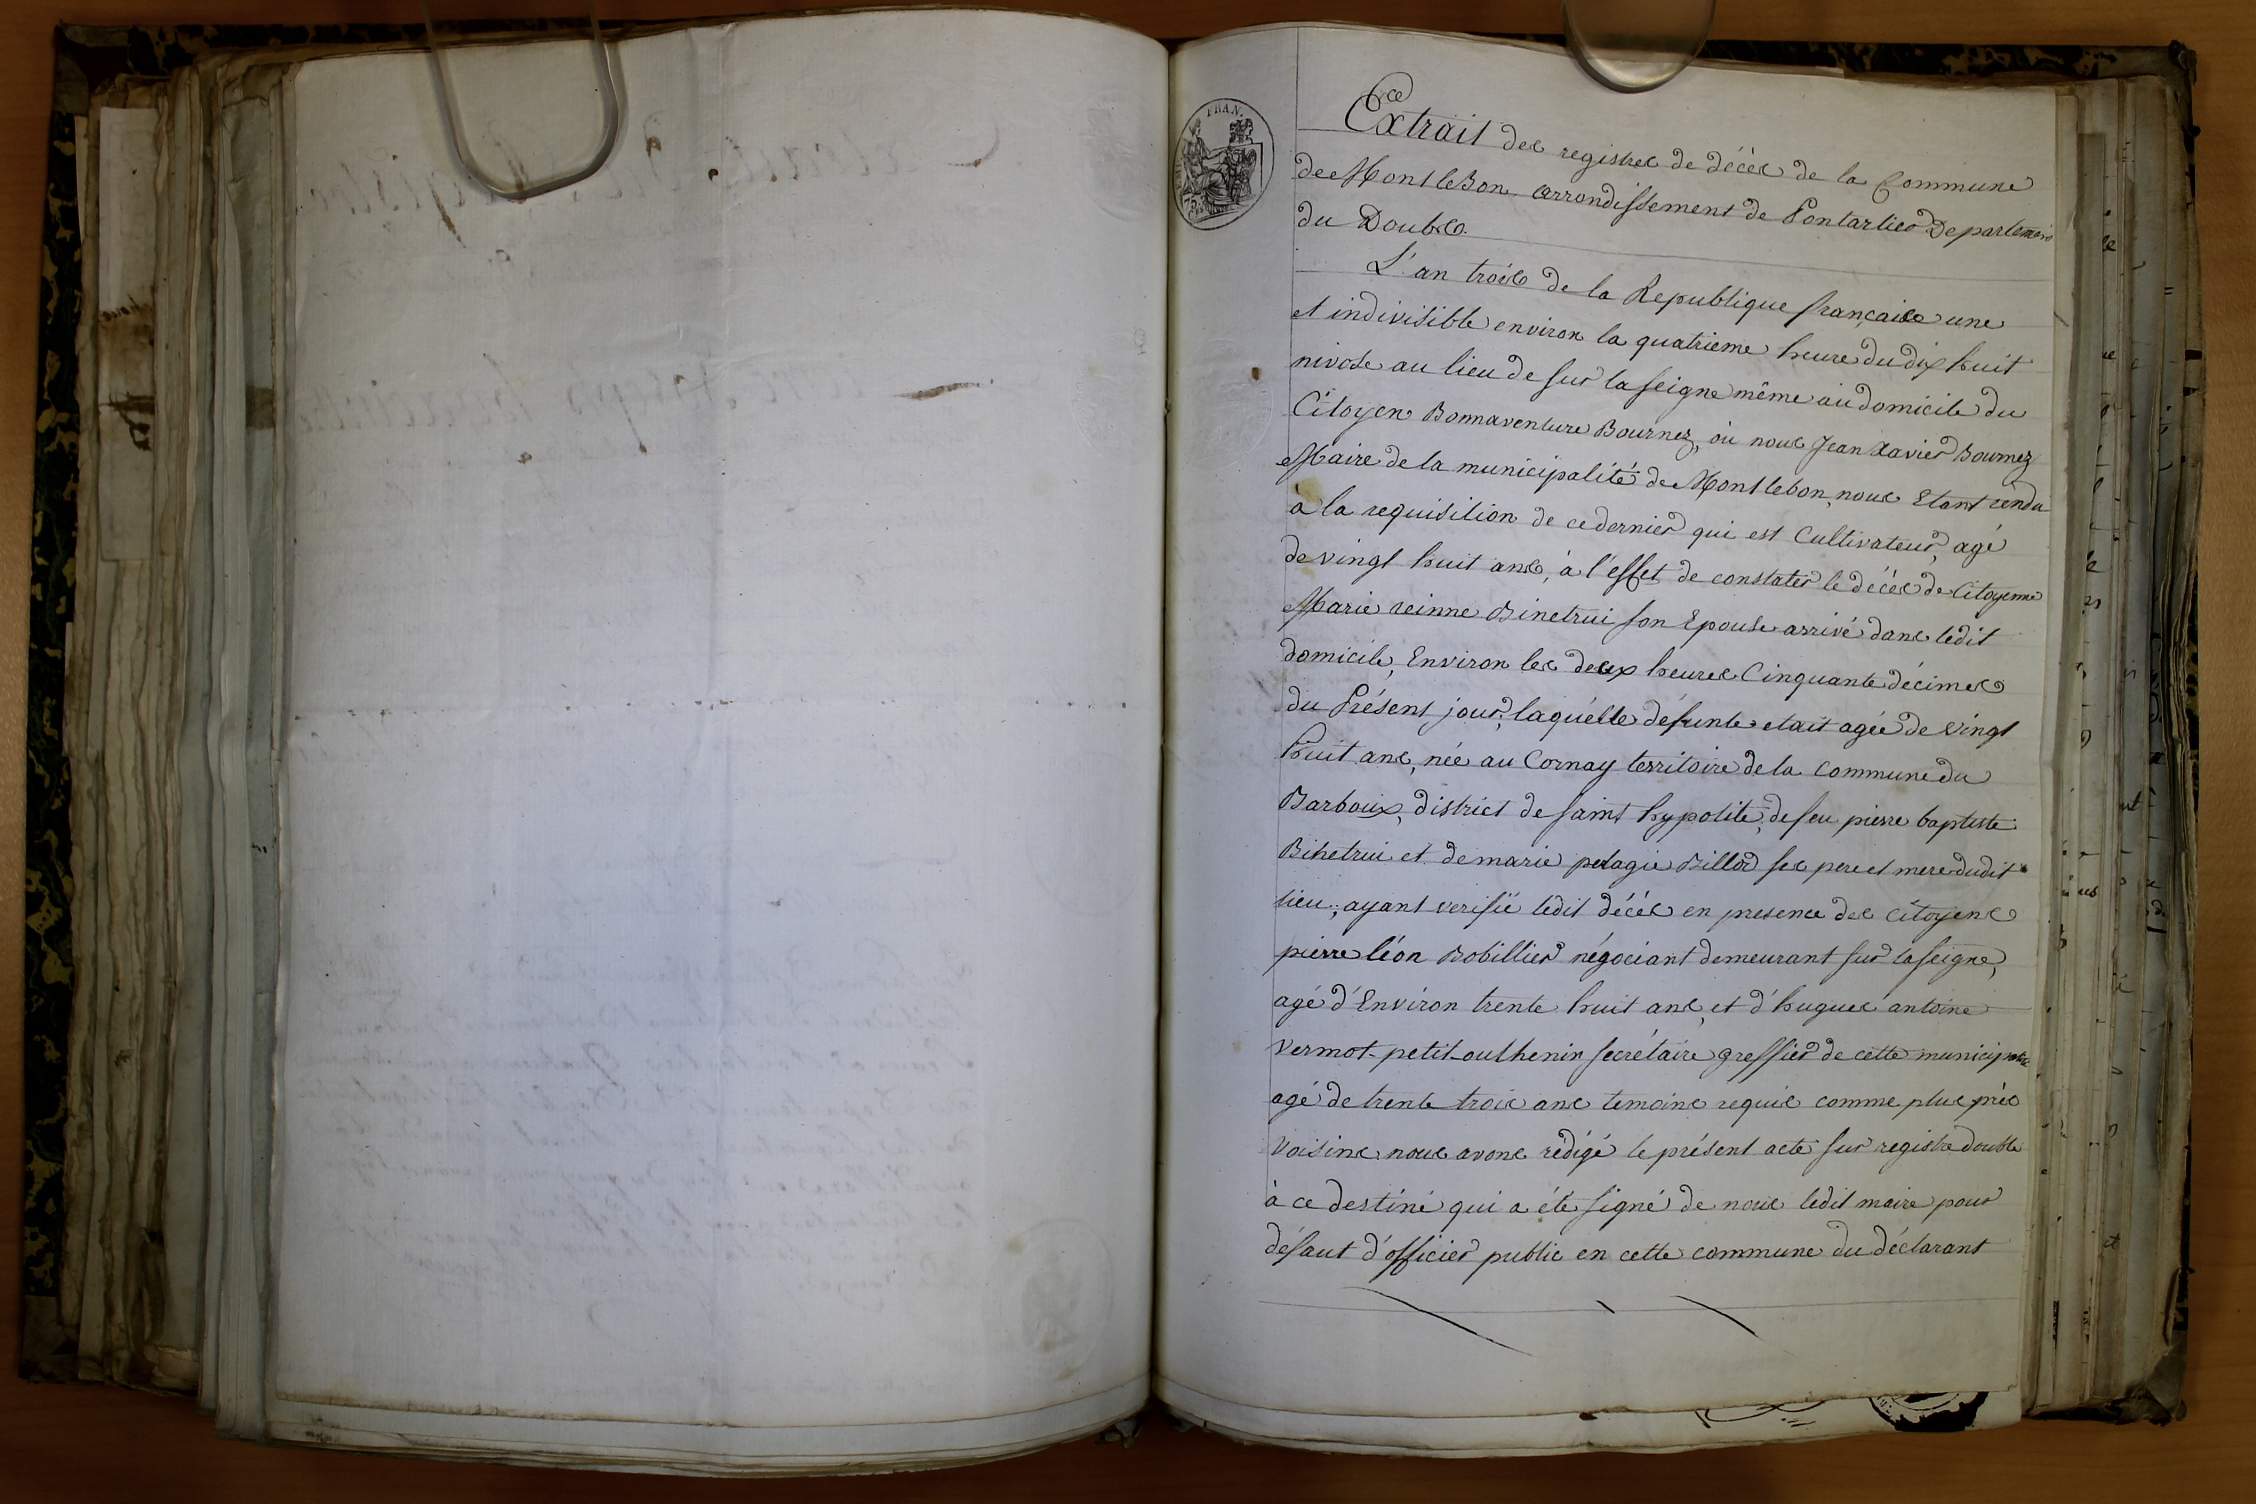 FRAN.
75.
Extrait des registres de décès de la Commune
de Montlebon arrondissement de Pontarlier Departement
du Doubs.
L'an trois de la Republique française une
et indivisible environ la quatrieme heure du dix huit
nivose au lieu de sur la seigne même au domicile du
Citoyen Bonnaventure Bournez, où nous Jean Xavier Bournez
Maire de la municipalité de Montlebon, nous Etant rendu
à la requisition de ce dernier qui est Cultivateur, agé
de vingt huit ans, à l'effet de constater le décès de Citoyenne
Marie reinne Binetrui son Epouse arrivé dans ledit
domicile, Environ les deux heures Cinquante décimes
du Présent jour, laquélle défunte etait agée de vingt
huit ans, née au Cornay territoire de la commune du
Barboux, district de saint hypolite, de feu pierre baptiste
Binetrui et de marie pelagie Billod ses pere et mere dudit
lieu; ayant verifié ledit décès en presence des citoyens
pierre léon Bobillier négociant demeurant sur la seigne,
agé d'Environ trente huit ans, et d'hugues antoine
vermot-petit-outhenin secrétaire greffier de cette municipalité
agé de trente trois ans temoins requis comme plus près
Voisins nous avons rédigé le présent acte sur registre double
à ce destiné qui a été signé de nous ledit maire pour
défaut d'officier public en cette commune du déclarant